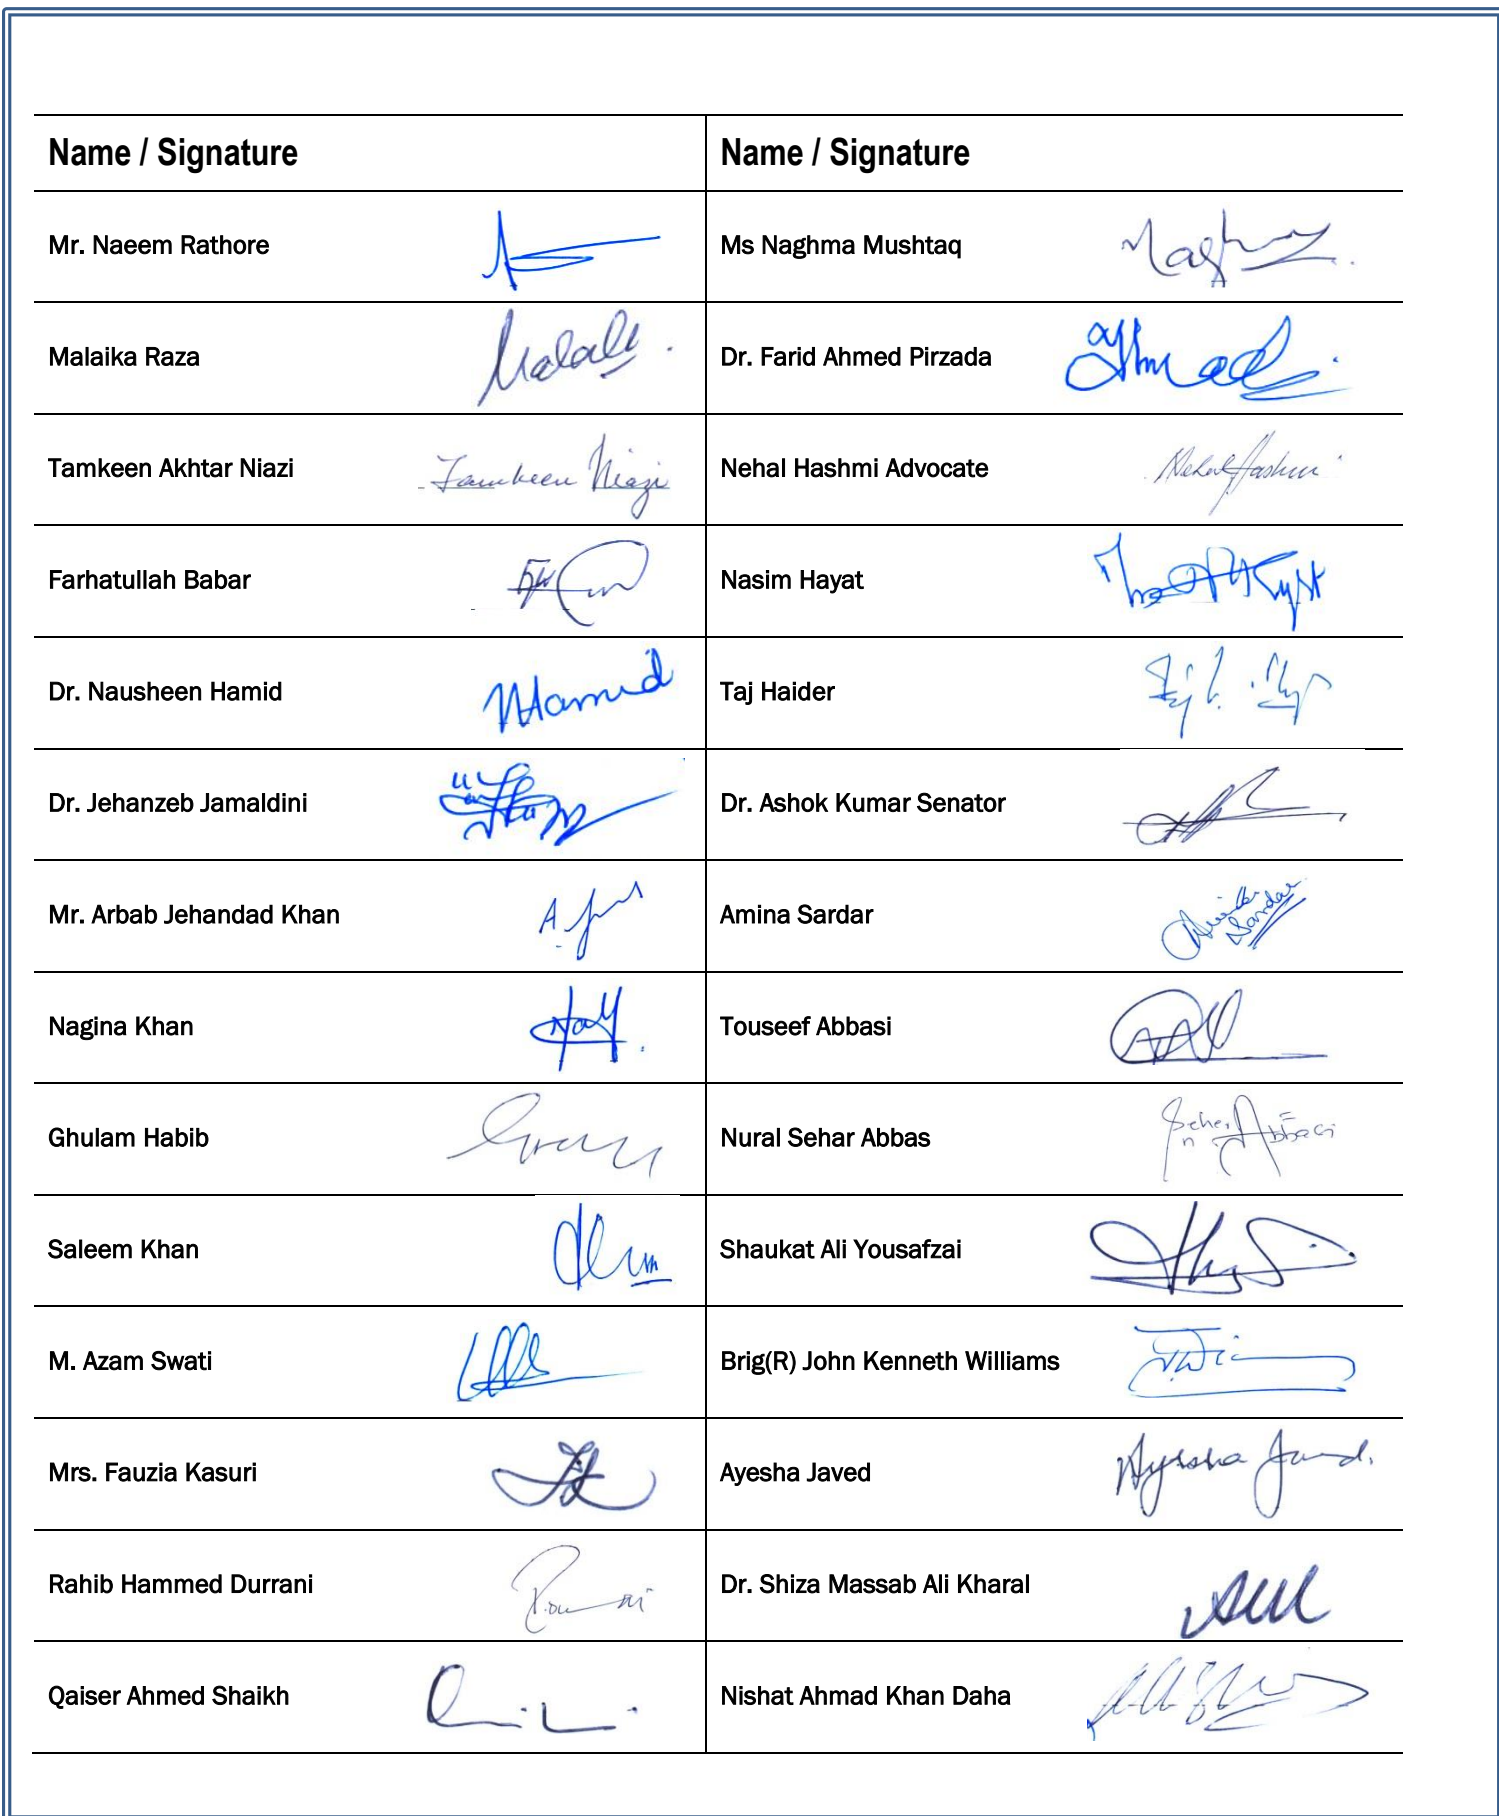 Name / Signature Name / Signature
Mr. Naeem Rathore Ms Naghma Mushtaq
Malaika Raza Dr. Farid Ahmed Pirzada
Tamkeen Akhtar Niazi Tamkeen Niazi Nehal Hashmi Advocate Nehal Hashmi
Farhatullah Babar Nasim Hayat
Dr. Nausheen Hamid NHamid Taj Haider
Dr. Jehanzeb Jamaldini Dr. Ashok Kumar Senator
Mr. Arbab Jehandad Khan Amina Sardar Sardar
Nagina Khan Touseef Abbasi
Ghulam Habib Nural Sehar Abbas Seher Abbasi
Saleem Khan Shaukat Ali Yousafzai
M. Azam Swati Brig(R) John Kenneth Williams
Mrs. Fauzia Kasuri Ayesha Javed Ayesha Javed.
Rahib Hammed Durrani Dr. Shiza Massab Ali Kharal
Qaiser Ahmed Shaikh Nishat Ahmad Khan Daha